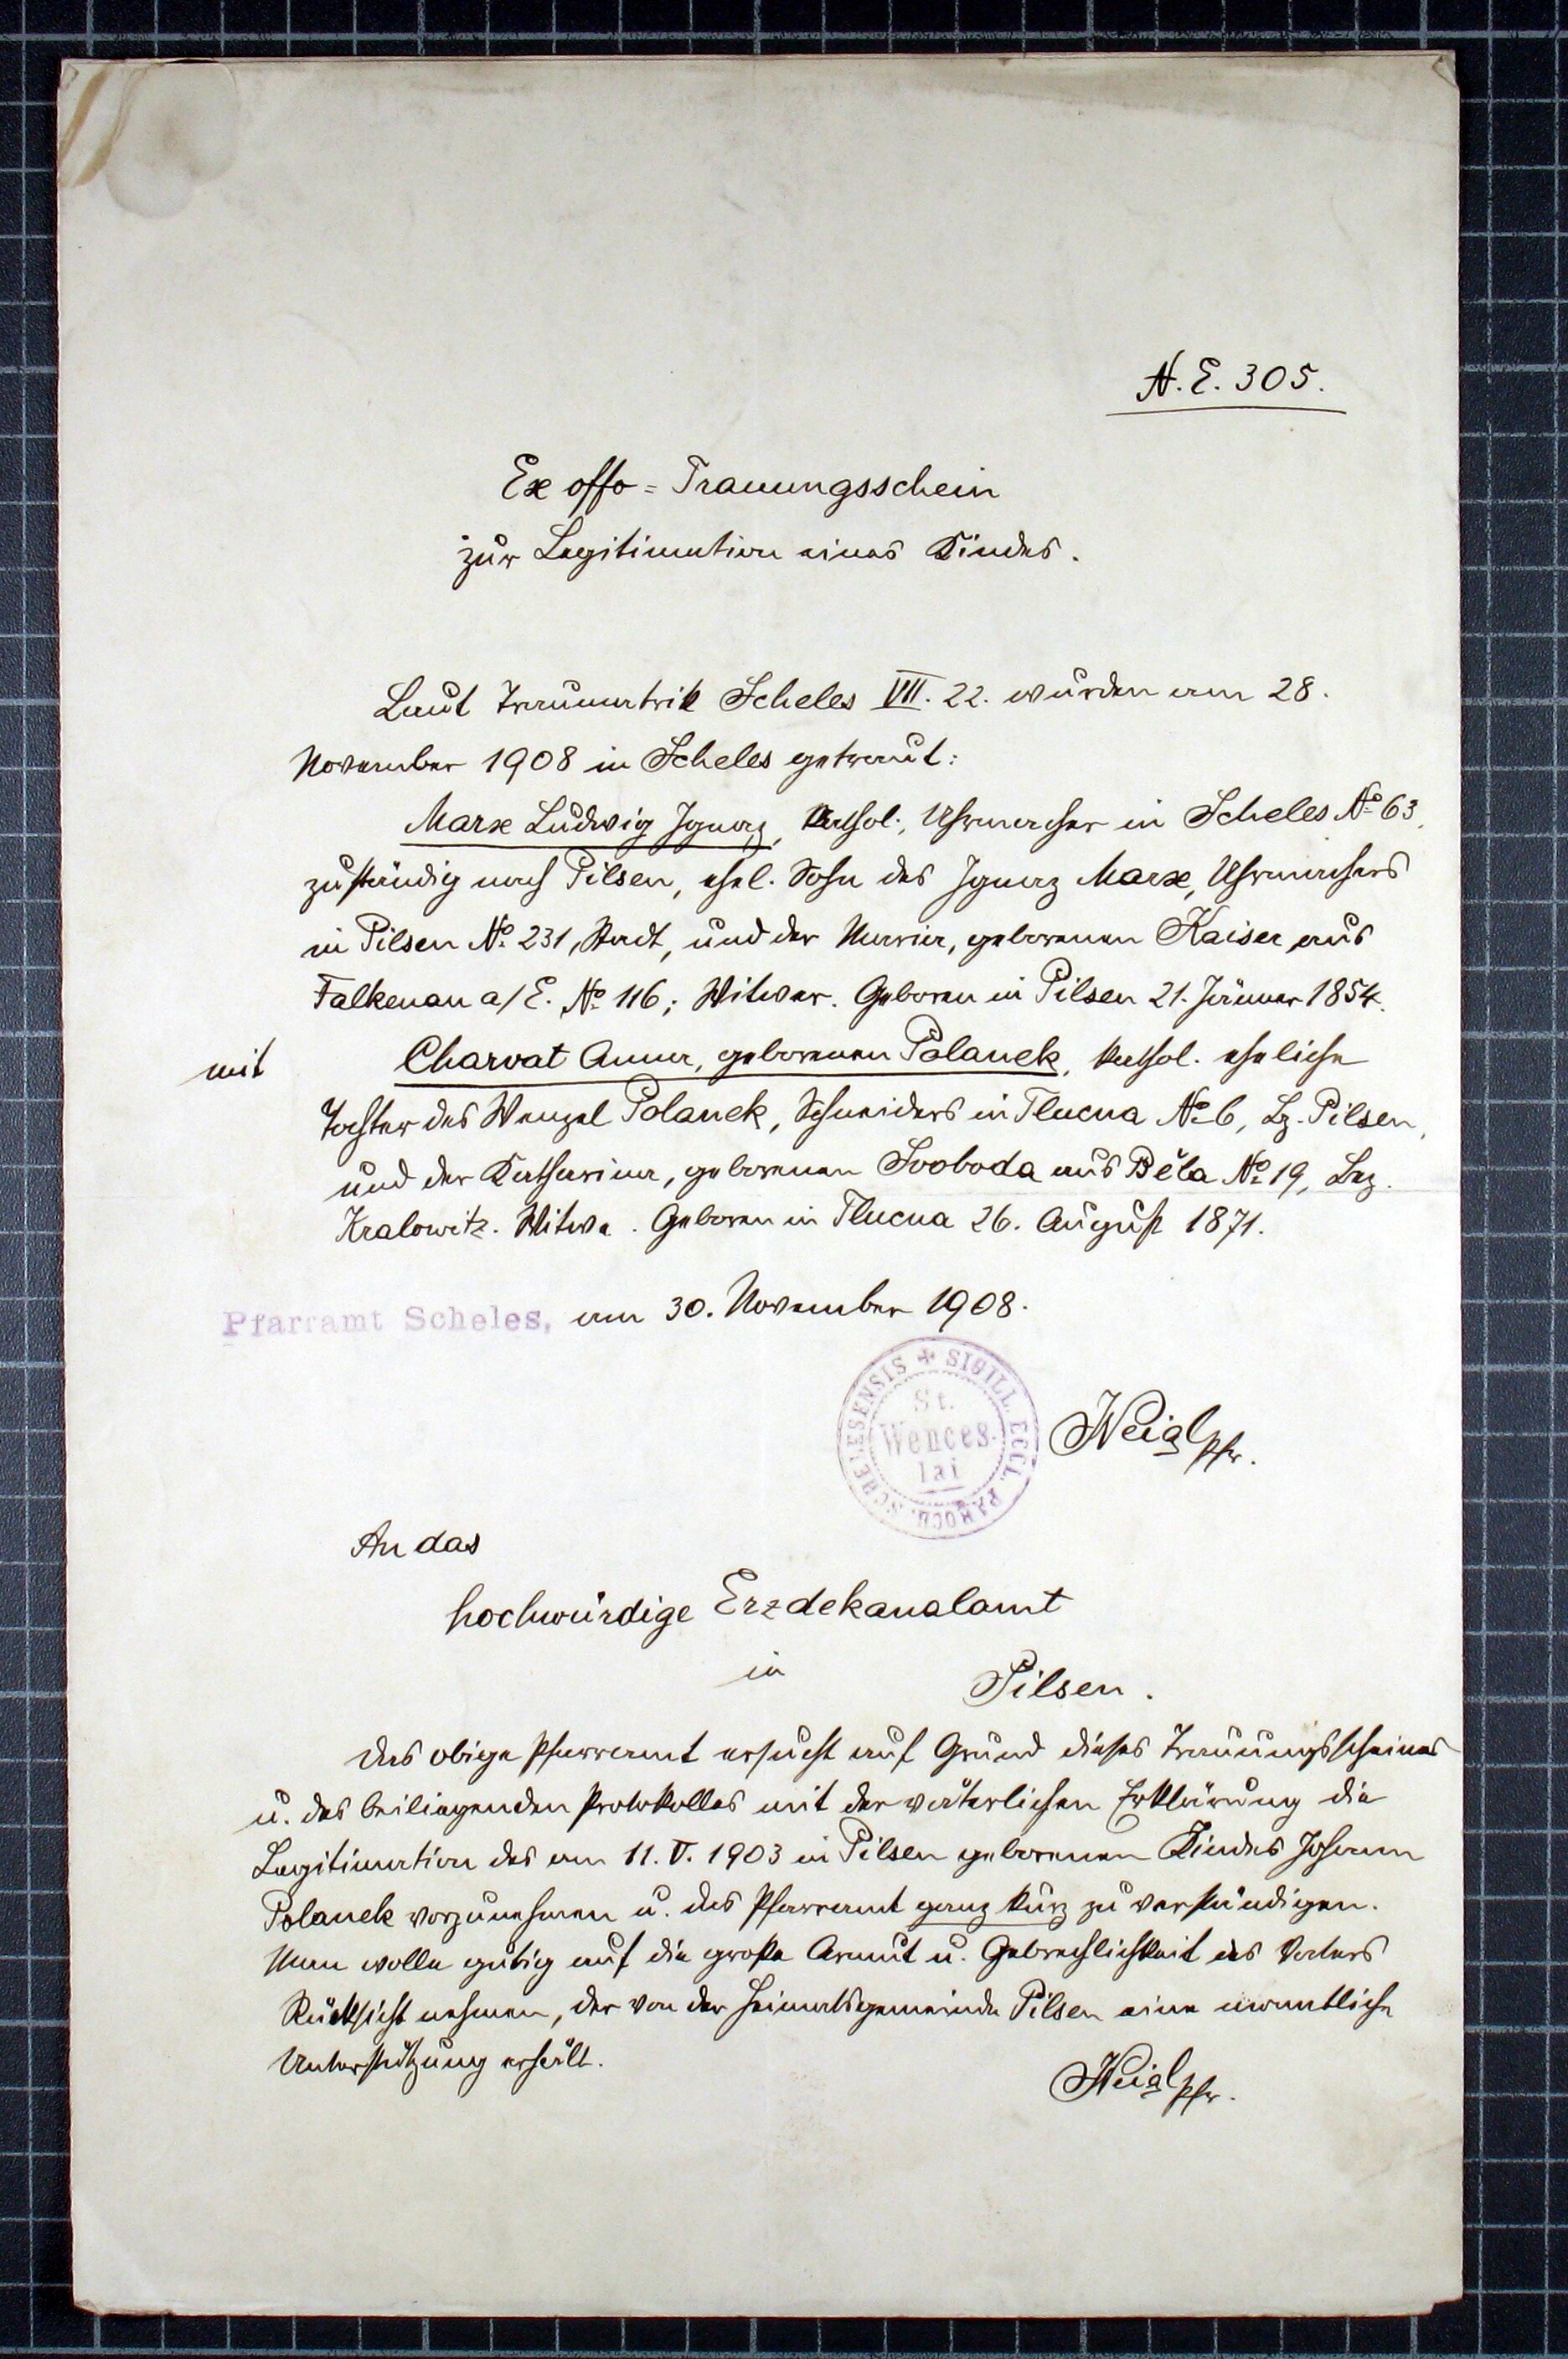 N.E. 305.
Ex offo = Trauungsschein
zur Legitimation eines Kindes.
Laut Traumatrik Scheles VII. 22. wurden am 28.
November 1908 in Scheles getraut:
Marx Ludwig Ignaz, kathol., Uhrmacher in Scheles No 63,
zuständig nach Pilsen, ehel. Sohn des Ignaz Marx, Uhrmachers
in Pilsen No. 231, Stadt, und der Maria, geborenen Kaiser aus
Falkenau a/E. No 116; Witwer. Geboren in Pilsen 21. Jänner 1854.
mit Charvat Anna, geborenen Polanek, kathol. eheliche
Tochter des Wenzel Polanek, Schneiders in Tlucna No 6, Bz. Pilsen,
und der Katharina, geborenen Svoboda aus Běla No 19, Bez.
Kralowitz. Witwe. Geboren in Tlucna 26. August 1871.
Pfarramt Scheles, am 30. November 1908.
SIGILL. ECCL. PAROCH. SCHELESENSIS
St.
Wences-
lai
Weigl Pfr.
An das
hochwürdige Erzdekanalamt
in
Pilsen.
Das obige Pfarramt ersucht auf Grund dieses Trauungsscheines
u. des beiliegenden Protokolles mit der väterlichen Erklärung die
Legitimation des am 11. V. 1903 in Pilsen geborenen Kindes Johann
Polanek vorzunehmen u. das Pfarramt ganz kurz zu verständigen.
Man wolle gütig auf die große Armut u. Gebrechlichkeit des Vaters
Rücksicht nehmen, der von der Heimatsgemeinde Pilsen eine monatliche
Unterstützung erhält.
Weigl Pfr.